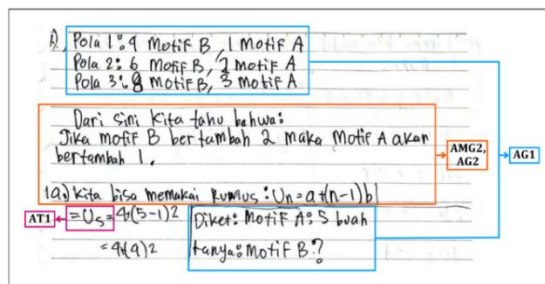 b). Pola 1: 4 Motif B, 1 Motif A
Pola 2: 6 Motif B, 2 Motif A
Pola 3: 8 Motif B, 3 Motif A
Dari sini kita tahu bahwa:
Jika motif B bertambah 2 maka Motif A akan
bertambah 1.
AMG2,
AG2
AG1
1a.) Kita bisa memakai rumus: Un = a+(n-1)b
AT1
= U5 = 4+(5-1)2
= 4+(4)2
Diket: Motif A: 5 buah
tanya: Motif B?